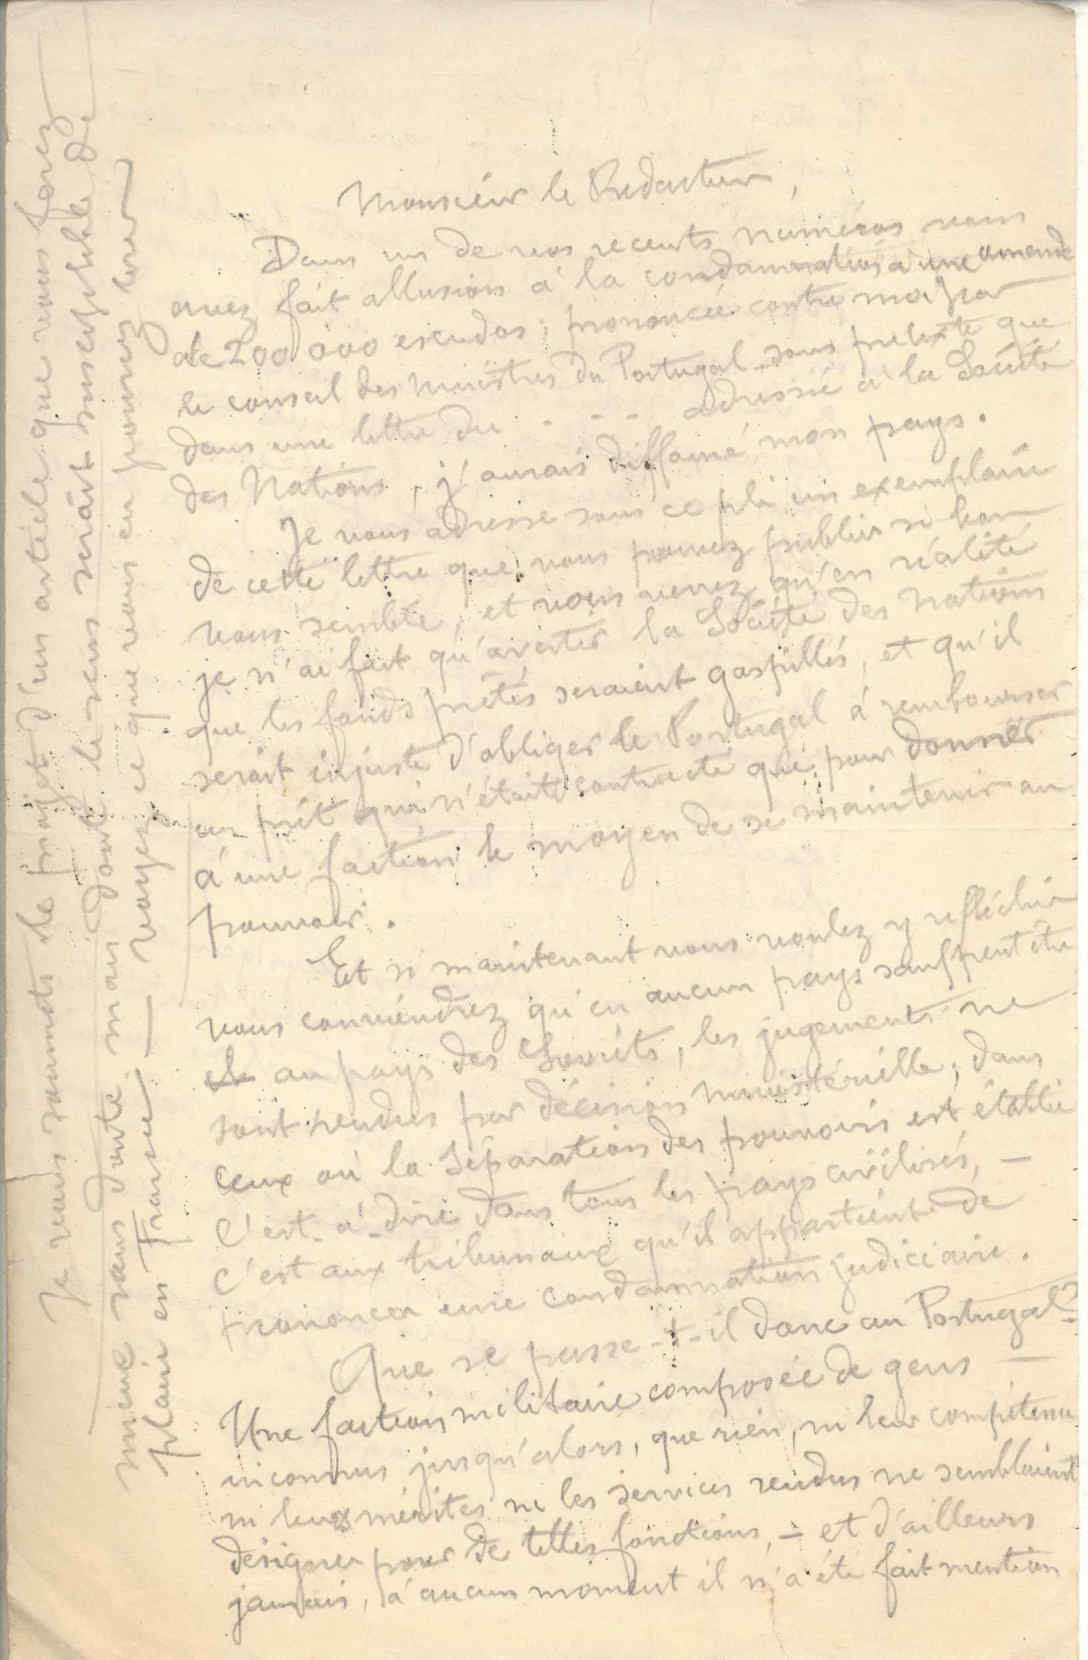 Monsieur le Redacteur,
Dans un de vos recents, numéros vous
avez fait allusion à la condamnation à une amende
de 200 000 escudos, prononcée contre moi par
le conseil des ministres du Portugal sous pretexte que
dans une lettre du - - - adressée à la Société
des Nations, j'aurais diffamé mon pays.
Je vous adresse sous ce pli un exemplaire
de cette lettre que vous pouvez publier si bon
vous semble, et vous verrez qu'en réalité
je n'ai fait qu'avertir la Société des Nations
que les fonds prêtés seraient gaspillés, et qu'il
serait injuste d'obliger le Portugal à rembourser
un prêt qui n'était contracté que pour donner
à une faction le moyen de se maintenir au
pouvoir.
Et si maintenant vous voulez y réfléchir
vous conviendrez qu'en aucun pays sauf peut être
au pays des Soviets, les jugements ne
sont rendus par décision ministérielle; dans
ceux où la séparation des pouvoirs est établie
c'est-à-dire dans tous les pays civilisés, —
c'est aux tribunaux qu'il appartient de
prononcer une condamnation judiciaire.
Que se passe-t-il donc au Portugal?
Une faction militaire composée de gens —
inconnus jusqu'alors, que rien, ni leur compétence
ni leurs mérites ni les services rendus ne semblaient
désigner pour de telles fonctions, — et d'ailleurs
jamais, à aucun moment il n'a été fait mention
Je vous soumets le projet d'un article que vous ferez
mieux sans doute mais dont le sens serait susceptible de
plaire en France — voyez ce que vous en pourrez tirer